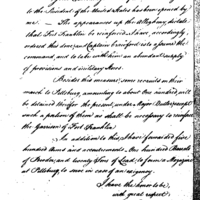 to the President of the United States have been opened by
me. — The appearances up the Allegheny dictate
that Fort Franklin be reinforced. I have, accordingly,
ordered this done, and Captain to assume the
command, and to take with him an abundant supply
of provisions and military stores.
Besides this measure, some recruits on their
march to Pittsburg, amounting to about one hundred, will
be detained there for the present, under Major Butler, except
such a portion of them as shall be necessary to reinforce
the Garrison of Fort Franklin.
In addition to this I have forwarded five
hundred Arms and accoutrements, One hundred Barrels
of Powder, and twenty Tons of Lead, to form a Magazine
at Pittsburg to serve in case of an emergency.
I have the honor to be,
with great respect